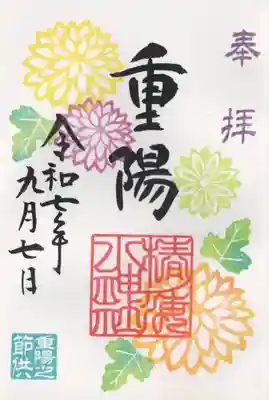 奉拝
重陽
令和七年
九月七日
椿海
水神社
重陽之
節供